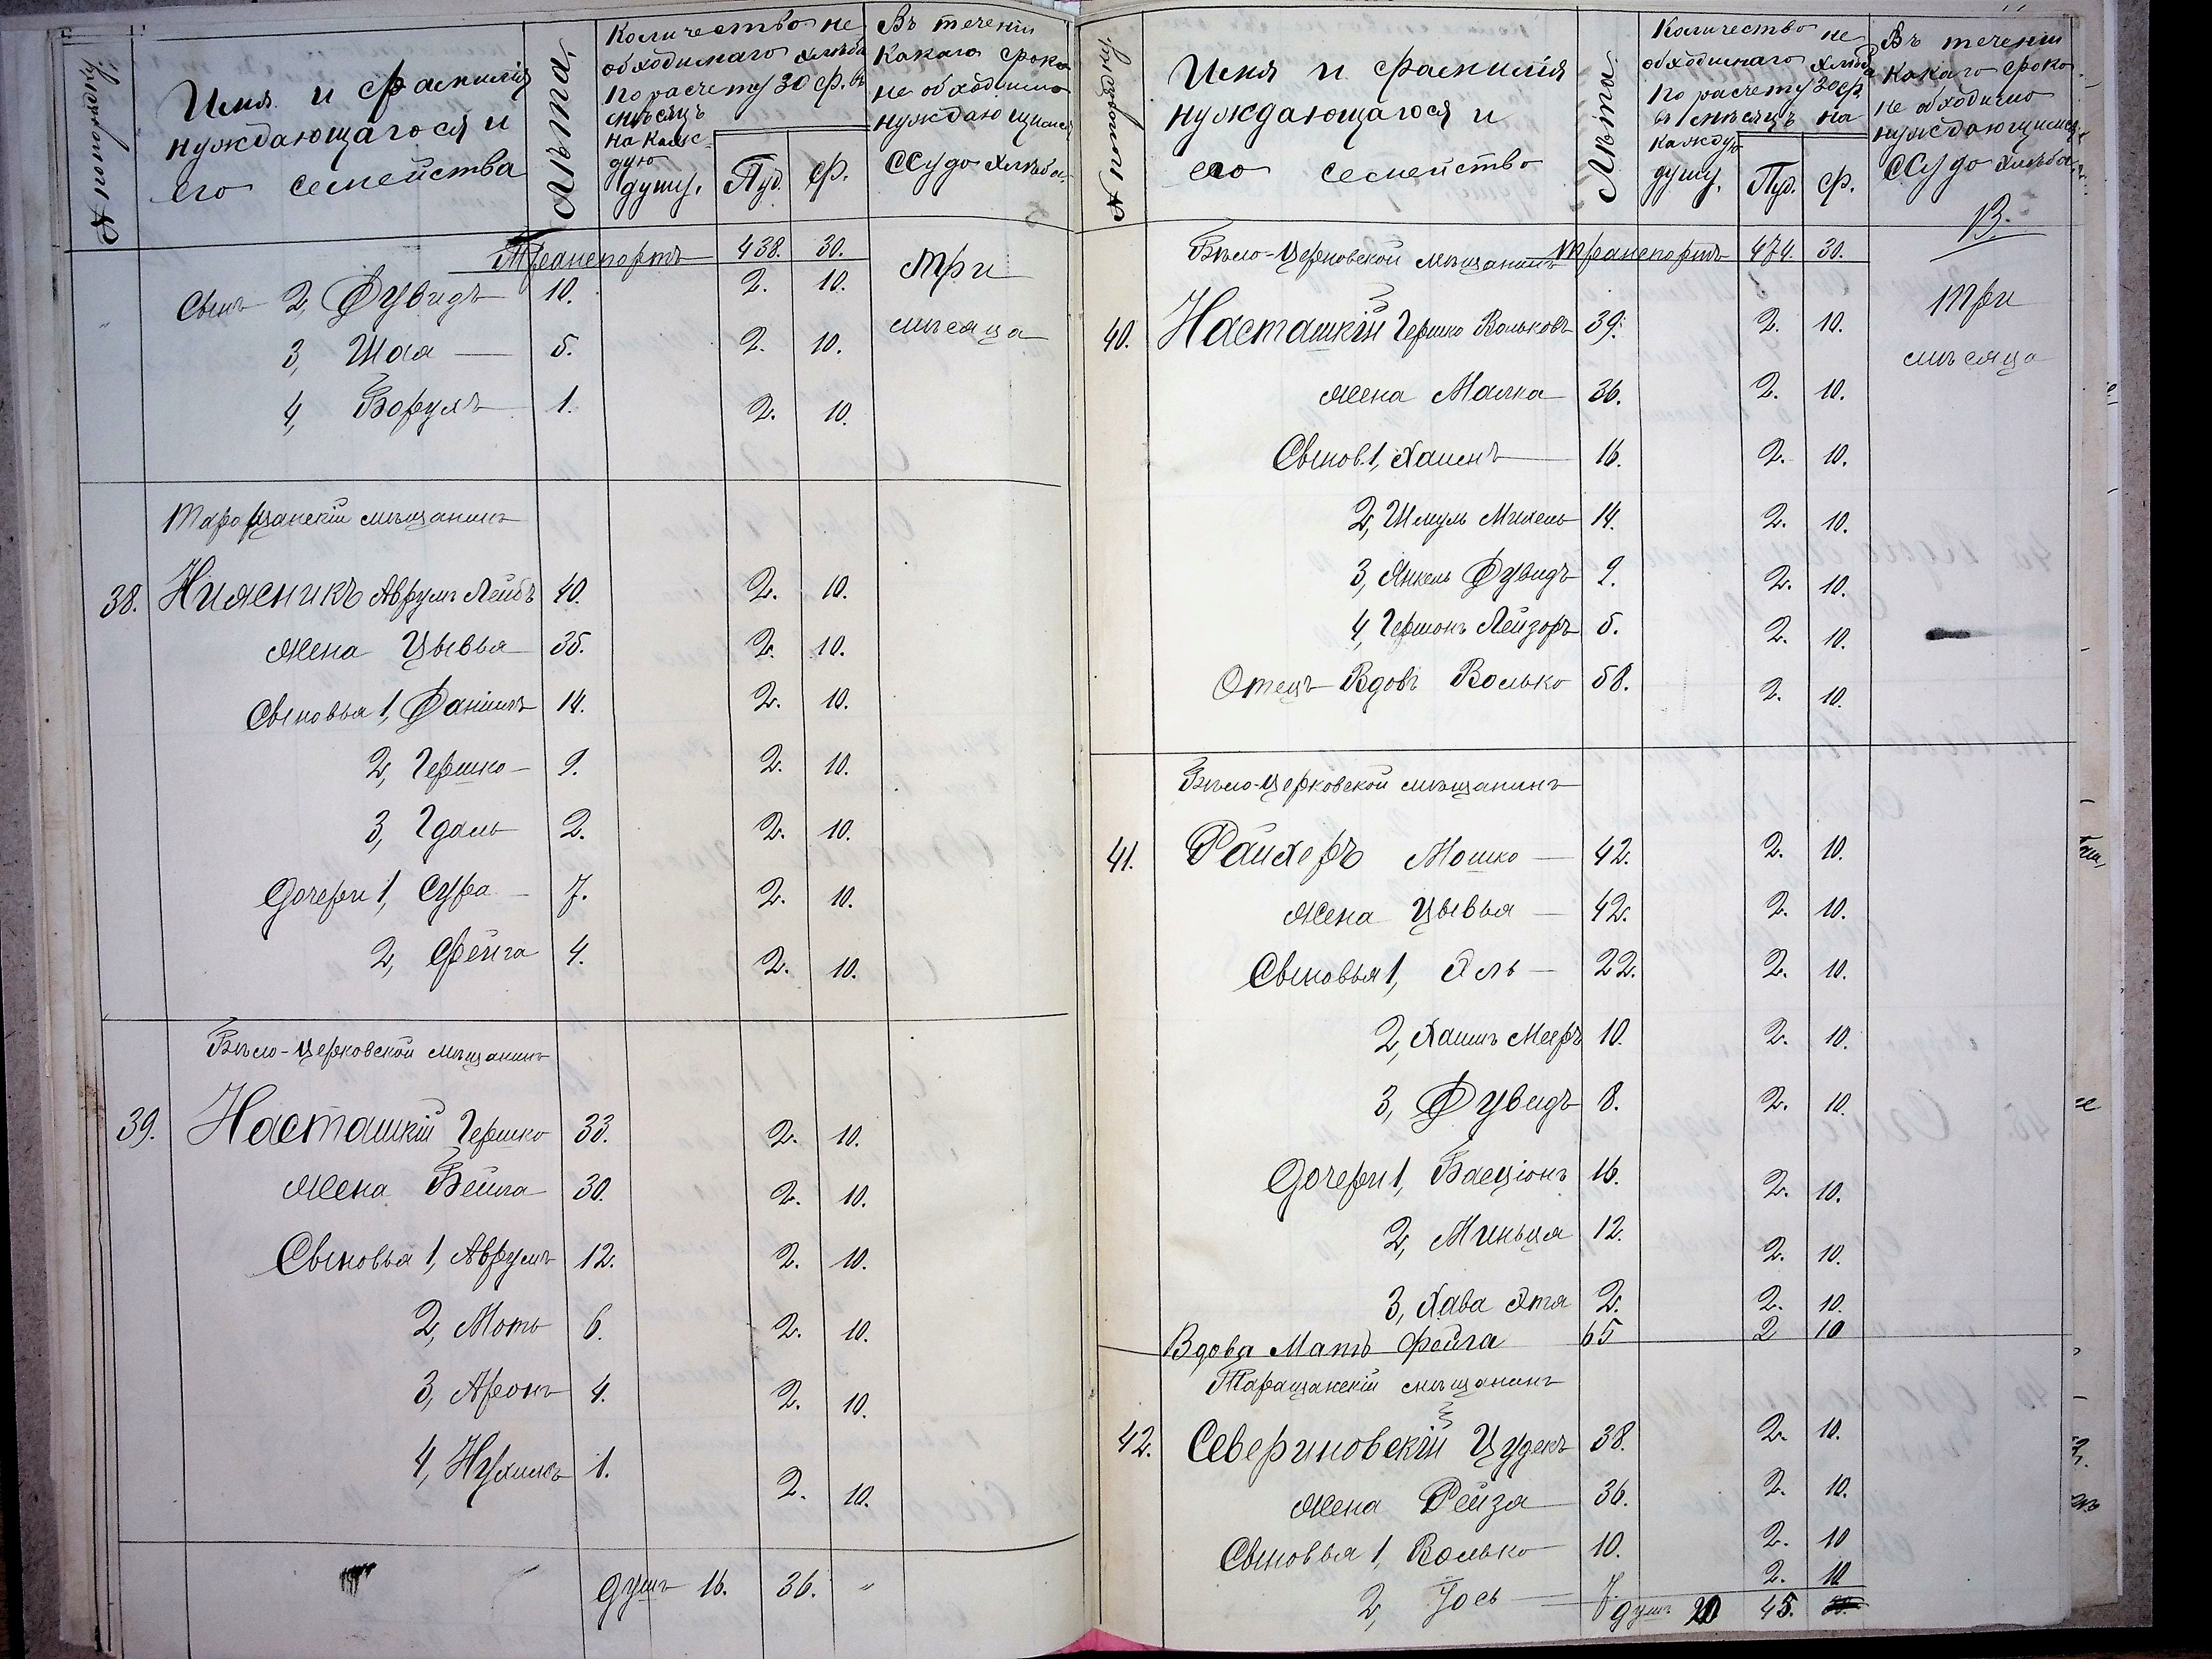 № по порядку
Имя и фамилія
нуждающагося и
его семейства
Лѣта
Количество не
обходимаго хлѣба
по расчету 30 ф. въ
мѣсяцъ
на каж-
дую
душу.
Пуд. Ф.
Въ теченіи
какого срока
не обходимо
нуждающимся
ССуда хлѣба.
Транспортъ 438. 30.
Сынъ 2, Дувидъ 10. 2. 10. три
3, Шая — 5. 2. 10. мѣсяца
4, Борухъ 1. 2. 10.
Таращанскій мѣщанинъ
38. Нижникъ Аврумъ Лейбъ 40. 2. 10.
жена Цывья 35. 2. 10.
Сыновья 1, Даніилъ 14. 2. 10.
2, Гершко — 9. 2. 10.
3, Гдаль 2. 2. 10.
Дочери 1, Сура — 7. 2. 10.
2, Фейга 4. 2. 10.
Бѣло-Церковской мѣщанинъ
39. Насташкій Гершко 33. 2. 10.
жена Бейла 30. 2. 10.
Сыновья 1, Аврумъ 12. 2. 10.
2, Моть 6. 2. 10.
3, Аронъ 4. 2. 10.
4, Нухимъ 1. 2. 10.
душъ 16. 36. "
№ по порядку
Имя и фамилія
нуждающагося и
его семейство
Лѣта
Количество не
обходимаго хлѣба
по расчету 30 ф.
въ мѣсяцъ на
каждую
душу.
Пуд. Ф.
Въ теченіи
какого срока
не обходимо
нуждающимся
ССуда хлѣба.
13.
Бѣло-Церковской мѣщанинъ Транспортъ 474. 30.
40. Насташкій Гершко Вольковъ 39. 2. 10. три
жена Малка 36. 2. 10. мѣсяца
Сынов. 1, Хаимъ 16. 2. 10.
2, Шмуль Михель 14. 2. 10.
3, Янкель Дувидъ 9. 2. 10.
4, Гершонъ Лейзоръ 5. 2. 10.
Отецъ Вдовъ Волько 58. 2. 10.
Бѣло-Церковской мѣщанинъ
41. Райхеръ Мошко — 42. 2. 10.
жена Цывья — 42. 2. 10.
Сыновья 1, — 22. 2. 10.
2, Хаимъ Мееръ 10. 2. 10.
3, Дувидъ 8. 2. 10.
Дочери 1, Басціонъ 16. 2. 10.
2, Миньця 12. 2. 10.
3, Хава Этя 2. 2. 10.
Вдова Мать Фейга 65 2 10
Таращанскій мѣщанинъ
42. Севериновскій 38. 2. 10.
жена Рейза 36. 2. 10.
Сыновья 1, Волько 10. 2. 10
2, Іось — 7 2. 10
душъ 20 45.